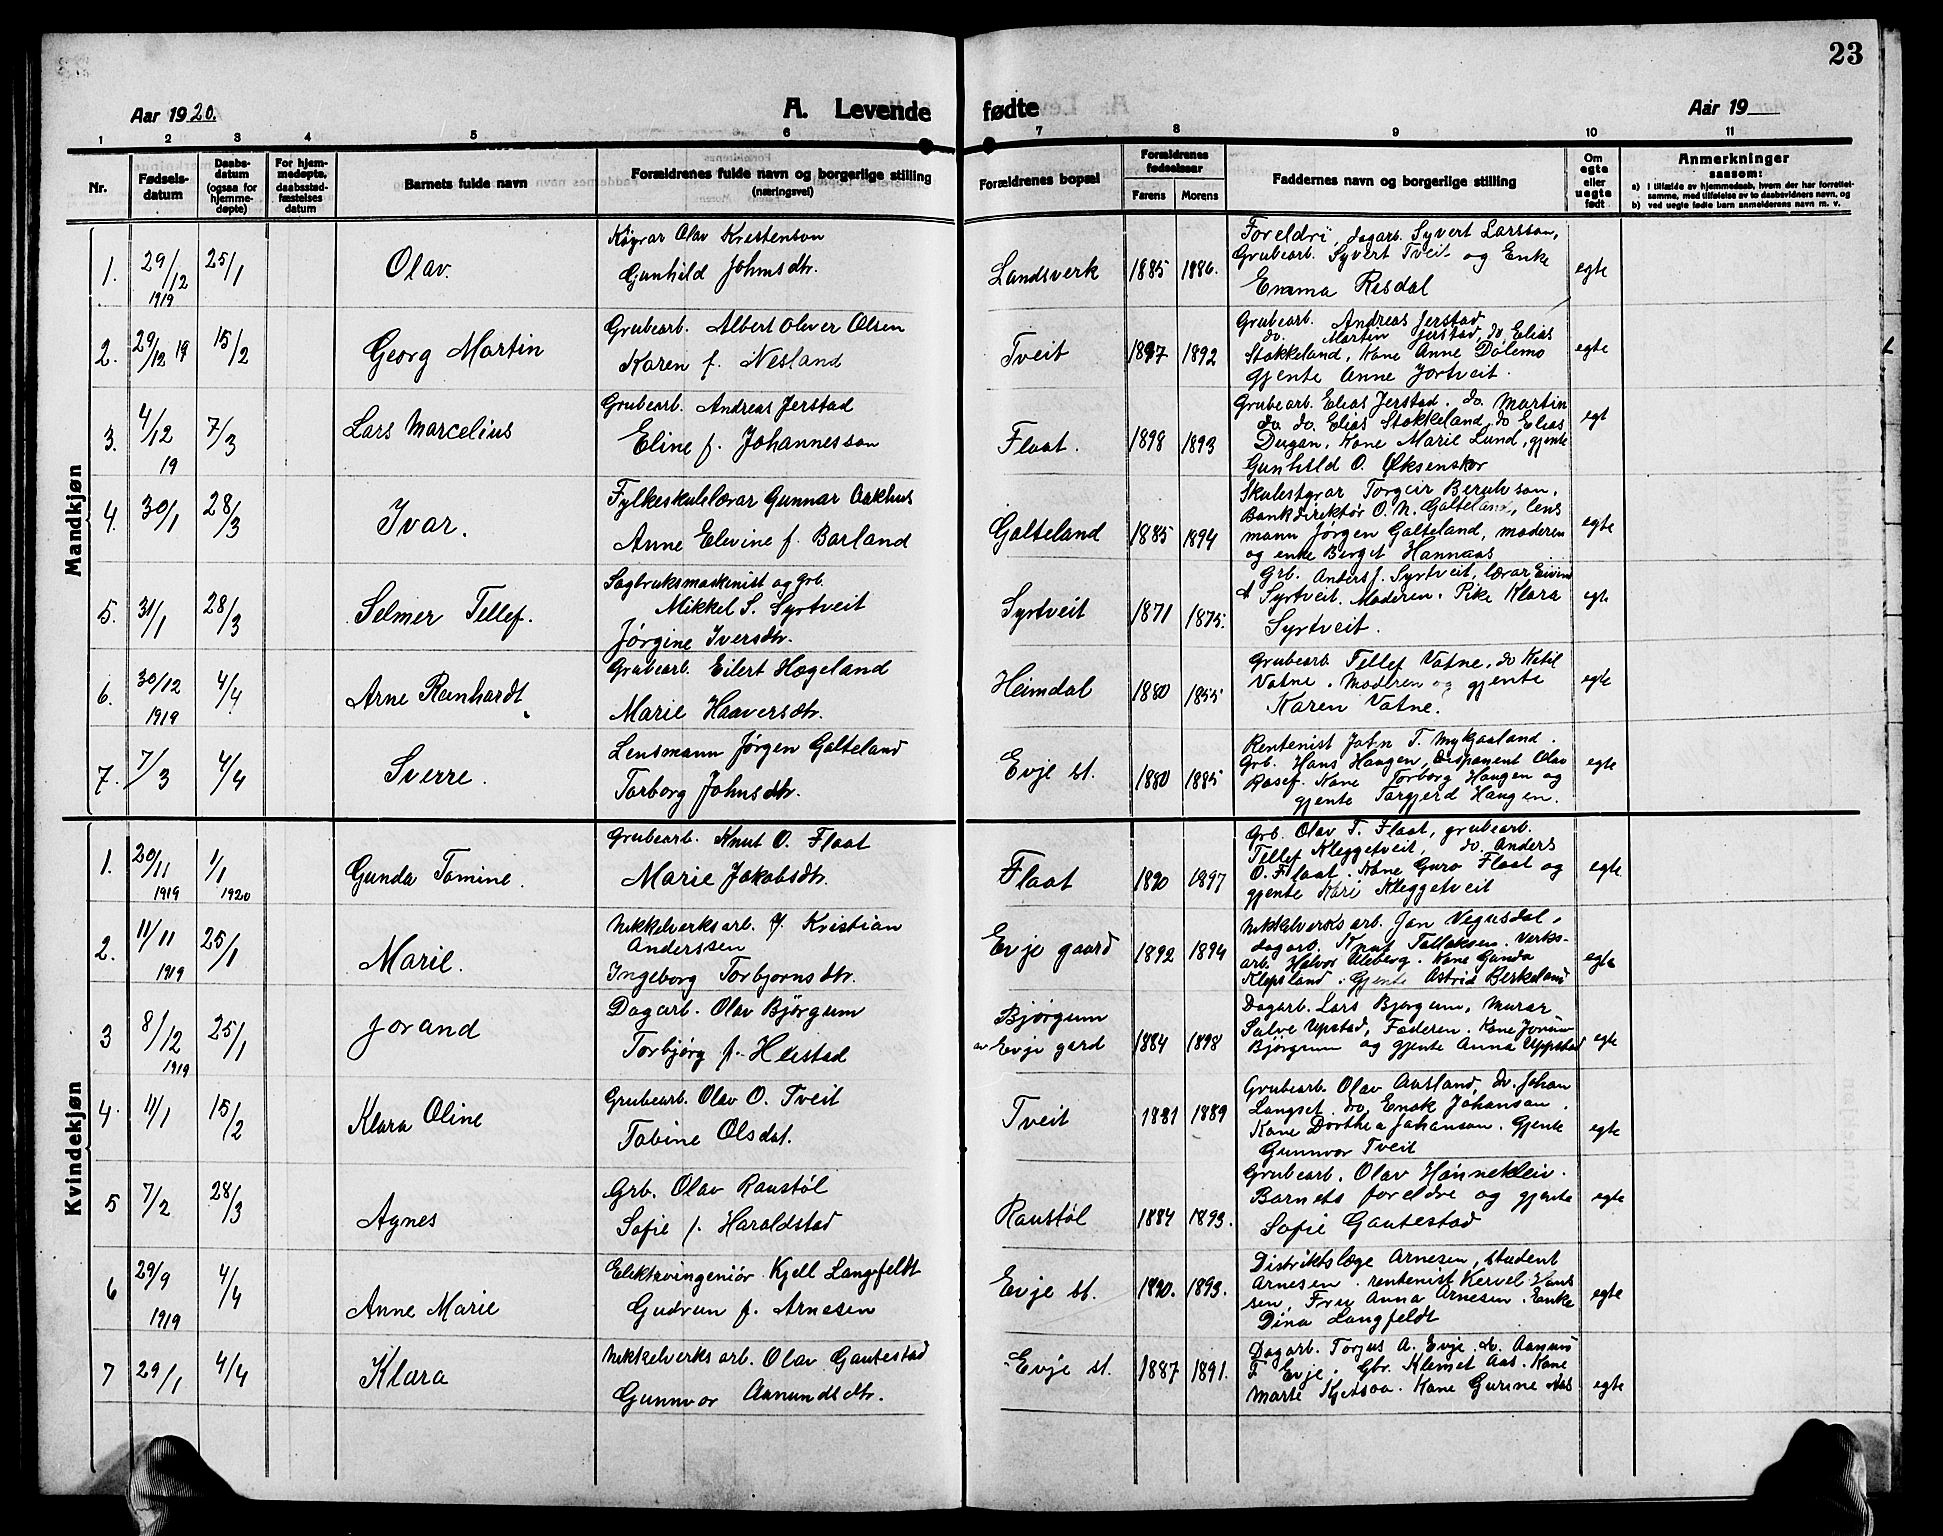 23
Aar 1920.
A. Levende
fødte
Aar 19
1 2 3 4 5 6 7 8 9 10 11
Nr.
Fødsels-
datum
Daabs-
datum
(ogsaa for
hjemme-
døpte)
For hjem-
medøpte,
daabsstad-
fæstelses
datum
Barnets fulde navn
Forældrenes fulde navn og borgerlige stilling
(næringsvei)
Forældrenes bopæl
Forældrenes
fødselsaar
Farens Morens
Faddernes navn og borgerlige stilling
Om
egte
eller
uegte
født
Anmerkninger
saasom:
a) i tilfælde av hjemmedaab, hvem der har forrettet-
samme, med tilføielse av to daabsvidners navn, og
b) ved uegte fødte barn anmelderens navn m. v.
Mandkjøn
1. 29/12 1919 25/1 Olav.
Olav Kristenson
Gunhild Johnsdtr.
Landsverk 1885 1886.
Foreldri, dagarb. Syvert Larsson,
Grubearb. Syvert Tveit og Enke
Emma Risdal
egte
2. 29/12 19 15/2 Georg Martin
Grubearb. Albert Olaver Olsen
Karen f. Nesland
Tveit 1897 1892
Grubearb. Andreas Jerstad
do. Martin Jerstad, do. Elias
Stokkeland, Kone Anne Dølemo
gjente Anne Jortveit.
egte
3. 4/12 19 7/3 Lars Marcelius
Grubearb. Andreas Jerstad
Eline f. Johannesson
Flaat. 1898 1893
Grubearb. Elias Jerstad. do. Martin
do do. Elias Stokkeland, do Elias
Dugan, Kone Marie Lund, gjente
Gunhild O.
egt
4. 30/1 28/3 Ivar.
Fylkeskulelærar Gunnar Aakhus
Anne Elevine f. Barland
Galteland 1885 1894
Skulestyrar Torgeir Berulvson,
Bankdirektør O. N. Galteland, lens
mann Jørgen Galteland, moderen
og enke Berget Hannaas
egte
5. 31/1 28/3 Selmer Tellef.
Sagbruksmaskinist og Grb.
Mikkel S. Syrtveit
Jørgine Iversdtr.
Syrtveit 1871 1875.
Grb. Anders J. Syrtveit, lærar Eivind
A Syrtveit. Moderen. Pike Klara
Syrtveit.
egte
6. 30/12 1919 4/4 Arne Reinhardt
Grubearb. Eilert Hægeland
Marie Haaversdtr.
Heimdal 1880 1855
Grubearb Tellef Vatne, do Ketil
Vatne. Moderen og gjente
Karen Vatne.
egte
7. 7/3 4/4 Sverre.
Lensmann Jørgen Galteland
Torborg Johnsdtr.
Evje st. 1880 1885
Rentenist John T. Mykjaaland.
Grb. Hans Haugen, Disponent Olav
Rosef. Kone Torborg Haugen og
gjente Torgjerd Haugen.
egte
Kvindekjøn
1. 20/11 1919 1/1 1920 Gunda Tomine.
Grubearb. Knut O. Flaat
Marie Jakobsdtr.
Flaat 1890 1897
Grb. Olav T. Flaat, grubearb.
Tellef Kleggetveit, do. Anders
O. Flaat. Kone Guro Flaat og
gjente Kari Kleggetveit
egte
2. 11/11 1919 25/1 Marie.
Nikkelverksarb. J. Kristian
Anderssen
Ingeborg Torbjornsdtr.
Evje gaard 1892 1894
Nikkelverksarb. Jon Vegusdal,
dagarb. Knut Tallaksen. Verks-
arb. Halvor Aleberg. Kone Gunda
Klepsland. Gjente Astrid Birkeland
egte
3 8/12 1919 25/1 Jorand
Dagarb. Olav Bjørgum
Torbjørg f. Heistad
Bjørgum
av Evje gard 1884 1898
Dagarb. Lars Bjørgum, Murar
Salve Upstad, Faderen. Kone
Bjørgum og gjente Anna Uppstad
egte
4. 11/1 15/2 Klara Oline
Grubearb. Olav O. Tveit
Tobine Olsdat.
Tveit 1881 1889
Grubearb. Olav Aasland, do. Johan
Langset. do, Enok Johanson.
Kone Dorthea Johanson. Gjente
Gunnvor Tveit
egte
5 7/2 28/3 Agnes
Grb. Olav Raustøl
Sofie f. Haraldstad
Raustøl 1884 1893.
Grubearb. Olav Hannekleiv.
Barnets foreldre og gjente
Sofie Gautestad
egte
6 29/9 1919 4/4 Anne Marie
Elektroingeniör. Kjell Langfeldt
Gudrun f. Arnesen
Evje st. 1890. 1893.
Distriktslæge Arnesen, student
Arnesen. rentenist Kervel Hans
sen, Fru Anna Arnesen. Enke
Dina Langfeldt
egte
7 29/1 4/4 Klara
Nikkelverksarb. Olav Gautestad
Gunnvor Aanundsdtr.
Evje st. 1887 1891.
Dagarb. Torjus A. Evje, do. Aanund
F Evje. Gbr. Klemet Aas. Kone
Marte Kjetsaa. Kone Gurine Aas
egte